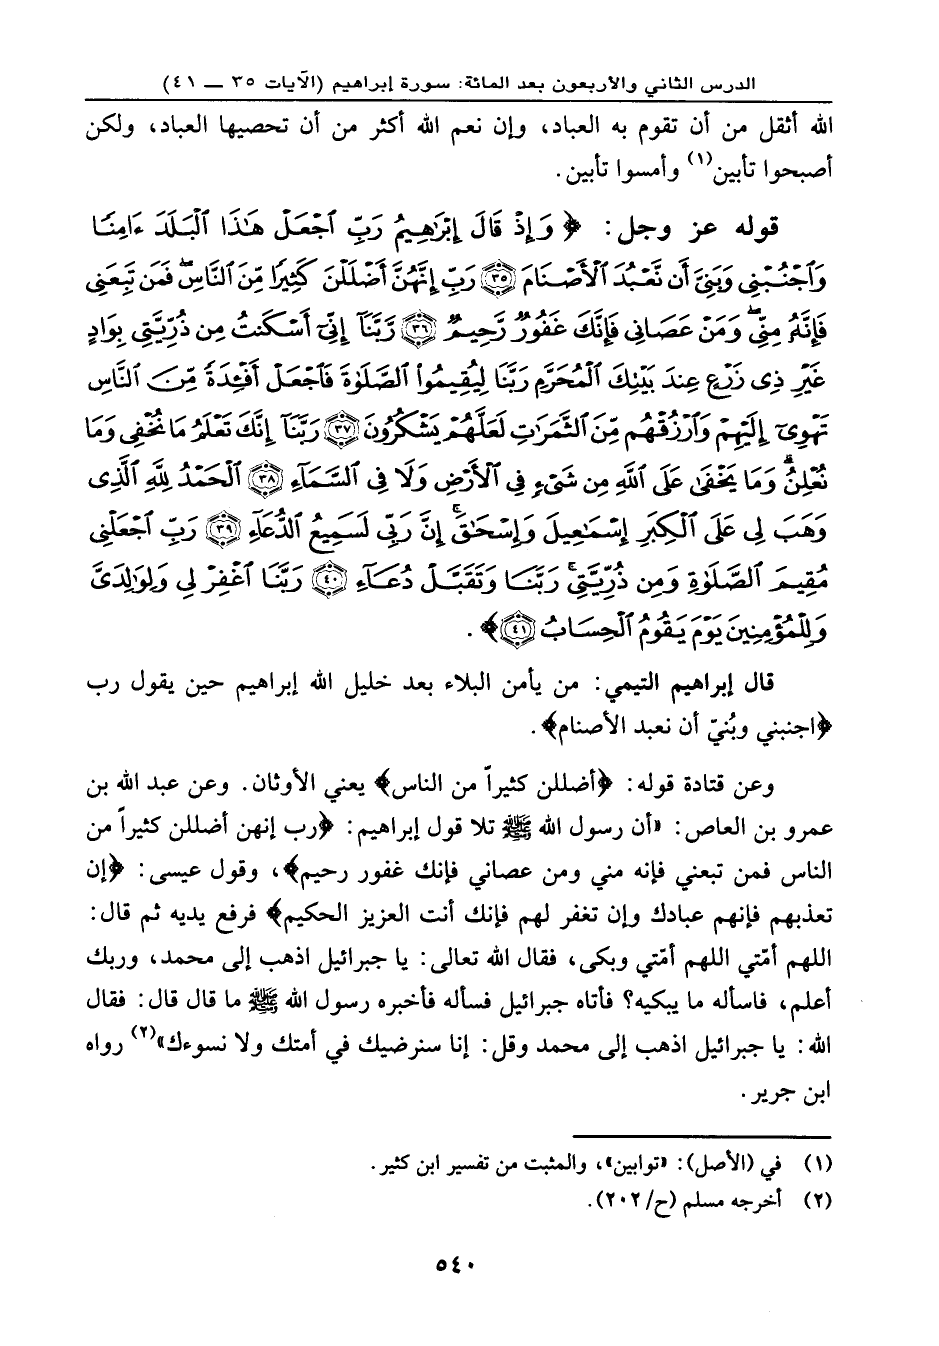 الدرس الثاني والأربعون بعد المائة: سورة إبراهيم (الآيات ٣٥ ــ ٤١)
الله أثقل من أن تقوم به العباد، وإن نعم الله أكثر من أن تحصيها العباد، ولكن
أصبحوا تأبين(١) وأمسوا تأبين.
قوله عز وجل: ﴿ وَإِذْ قَالَ إِبْرَٰهِيمُ رَبِّ ٱجْعَلْ هَٰذَا ٱلْبَلَدَ ءَامِنًا
وَٱجْنُبْنِى وَبَنِىَّ أَن نَّعْبُدَ ٱلْأَصْنَامَ ٣٥ رَبِّ إِنَّهُنَّ أَضْلَلْنَ كَثِيرًا مِّنَ ٱلنَّاسِ ۖ فَمَن تَبِعَنِى
فَإِنَّهُۥ مِنِّى ۖ وَمَنْ عَصَانِى فَإِنَّكَ غَفُورٌ رَّحِيمٌ ٣٦ رَّبَّنَآ إِنِّىٓ أَسْكَنتُ مِن ذُرِّيَّتِى بِوَادٍ
غَيْرِ ذِى زَرْعٍ عِندَ بَيْتِكَ ٱلْمُحَرَّمِ رَبَّنَا لِيُقِيمُوا۟ ٱلصَّلَوٰةَ فَٱجْعَلْ أَفْـِٔدَةً مِّنَ ٱلنَّاسِ
تَهْوِىٓ إِلَيْهِمْ وَٱرْزُقْهُم مِّنَ ٱلثَّمَرَٰتِ لَعَلَّهُمْ يَشْكُرُونَ ٣٧ رَبَّنَآ إِنَّكَ تَعْلَمُ مَا نُخْفِى وَمَا
نُعْلِنُ ۗ وَمَا يَخْفَىٰ عَلَى ٱللَّهِ مِن شَىْءٍ فِى ٱلْأَرْضِ وَلَا فِى ٱلسَّمَآءِ ٣٨ ٱلْحَمْدُ لِلَّهِ ٱلَّذِى
وَهَبَ لِى عَلَى ٱلْكِبَرِ إِسْمَٰعِيلَ وَإِسْحَٰقَ ۚ إِنَّ رَبِّى لَسَمِيعُ ٱلدُّعَآءِ ٣٩ رَبِّ ٱجْعَلْنِى
مُقِيمَ ٱلصَّلَوٰةِ وَمِن ذُرِّيَّتِى ۚ رَبَّنَا وَتَقَبَّلْ دُعَآءِ ٤٠ رَبَّنَا ٱغْفِرْ لِى وَلِوَٰلِدَىَّ
وَلِلْمُؤْمِنِينَ يَوْمَ يَقُومُ ٱلْحِسَابُ ٤١ ﴾ .
قال إبراهيم التيمي: من يأمن البلاء بعد خليل الله إبراهيم حين يقول رب
﴿اجنبني وبُنيّ أن نعبد الأصنام﴾ .
وعن قتادة قوله: ﴿أضللن كثيراً من الناس﴾ يعني الأوثان. وعن عبد الله بن
عمرو بن العاص: «أن رسول الله ﷺ تلا قول إبراهيم: ﴿رب إنهن أضللن كثيراً من
الناس فمن تبعني فإنه مني ومن عصاني فإنك غفور رحيم﴾، وقول عيسى: ﴿إن
تعذبهم فإنهم عبادك وإن تغفر لهم فإنك أنت العزيز الحكيم﴾ فرفع يديه ثم قال:
اللهم أمّتي اللهم أمّتي وبكى، فقال الله تعالى: يا جبرائيل اذهب إلى محمد، وربك
أعلم، فاسأله ما يبكيه؟ فأتاه جبرائيل فسأله فأخبره رسول الله ﷺ ما قال قال: فقال
الله: يا جبرائيل اذهب إلى محمد وقل: إنا سنرضيك في أمتك ولا نسوءك»(٢) رواه
ابن جرير.
(١) في (الأصل): «توابين»، والمثبت من تفسير ابن كثير.
(٢) أخرجه مسلم (ح/٢٠٢).
٥٤٠